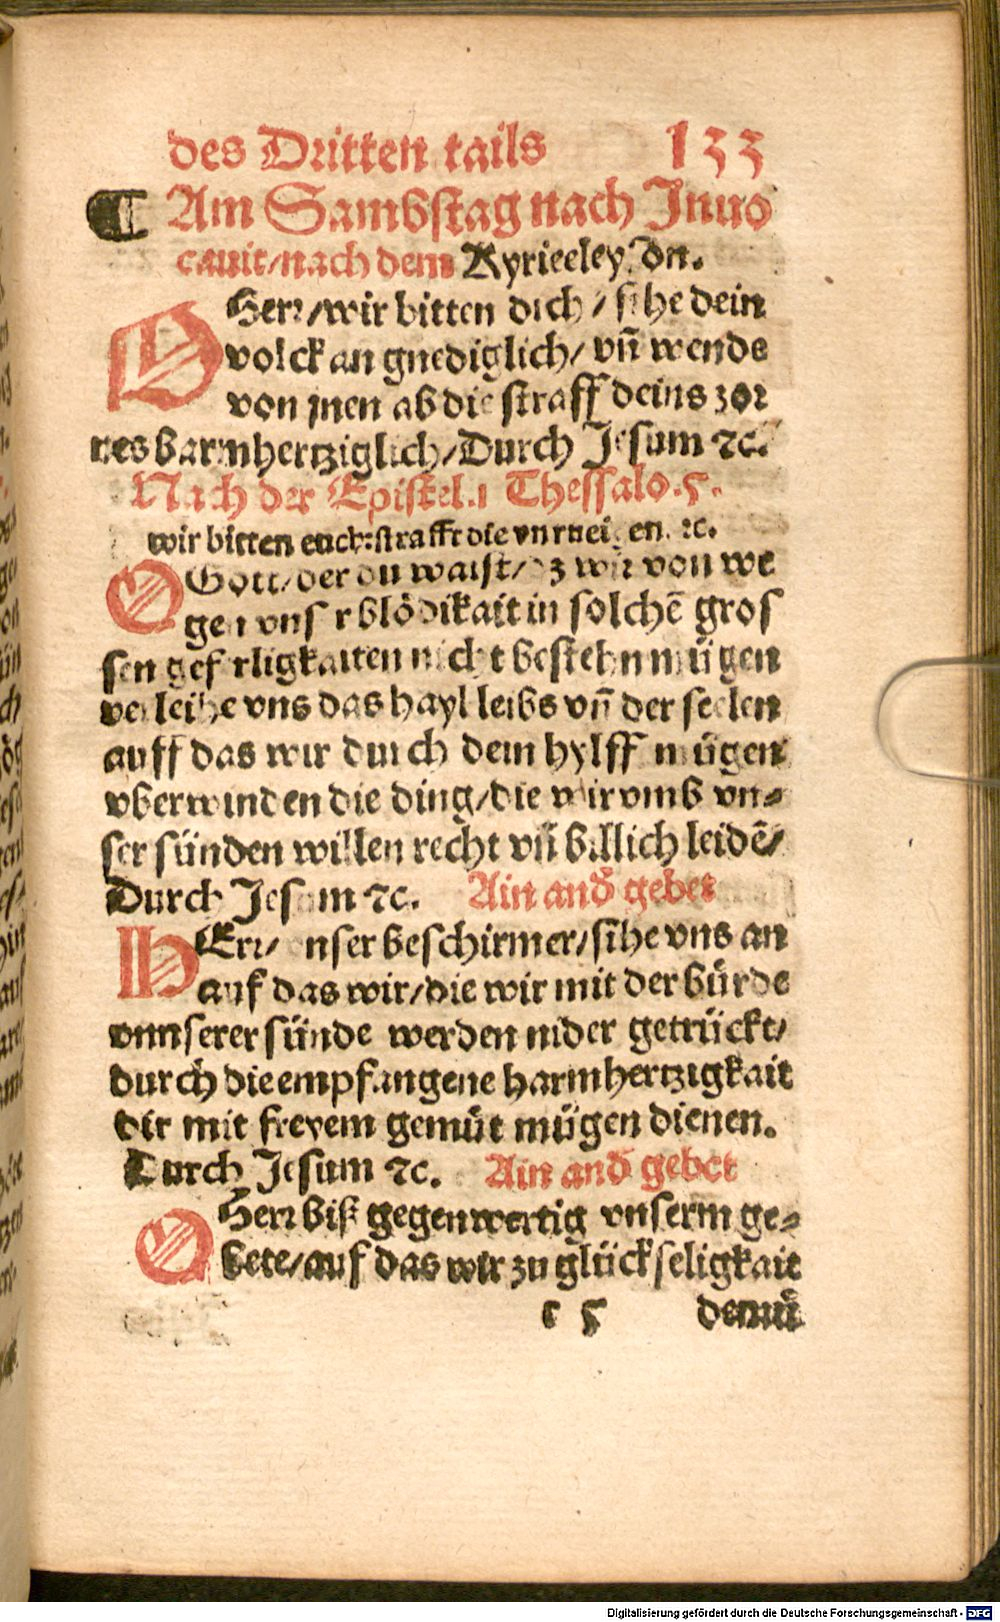 des Dritten tails 133
Am Sambstag nach Inuo
cauit/nach dem Kyrieeley. dn.
O Herr/wir bitten dich/sihe dein
volck an gnediglich/vñ wende
von jnen ab die straff deins zor
nes barmhertziglich/Durch Jesum ⁊c.
Nach der Epistel.1 Thessalo.5.
wir bitten euch:strafft die vnrueigen. ⁊c.
O Gott/der du waist/dz wir von we
gen vnser blödikait in solchē gros
sen geferligkaiten nicht bestehn mügen
verleihe vns das hayl leibs vñ der seelen
auff das wir durch dein hylff mügen
vberwinden die ding/die wir vmb vn-
ser sünden willen recht vñ billich leidē/
Durch Jesum ⁊c. Ain and̄ gebet
HErr/ vnser beschirmer/sihe vns an
auf das wir/die wir mit der bürde
vnnserer sünde werden nider getrückt/
durch die empfangene barmhertzigkait
dir mit freyem gemůt mügen dienen.
Durch Jesum ⁊c. Ain and̄ gebet
O Herr biß gegenwertig vnserm ge-
bete/auf das wir zu glückseligkait
r 5 demů
Digitalisierung gefördert durch die Deutsche Forschungsgemeinschaft - DFG